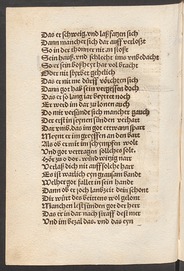 Das er schweig vnd laß sagen sich
Dann mancher sich dar auff verloßt
So in der thonner nit an stoßt
Sein hauß, vnd schlecht inn vnbedacht
So er sein boßheyt hat volbracht
Oder nit sprichet gehelich
Das er nit me dürff vörchten sich
Dann got hab sein vergessen doch
Das er so lang zeit beyttet noch
Er werd in dar zu lonen auch
Do mit versündt sich mancher gauch
Der erst in seynen sünden
Dar vmb, das im got vertragen spart
Meynt er im greyffen an den bart
Als ob er mit im schympfen wolt
Und got vertragen solches solt
Hör zu o dor, würd witzig narr
Verlaß dich nit auff solche harr
Es ist warlich eyn grausam bandt
Welher got fallet in sein handt
Dann ob er zoch langzeit dein schont
Dir würt des beittens wol gelont
Manchen lest sünden got der herr
Das er in dar nach straff dest mer
Und im bezal das, vnd das eyn